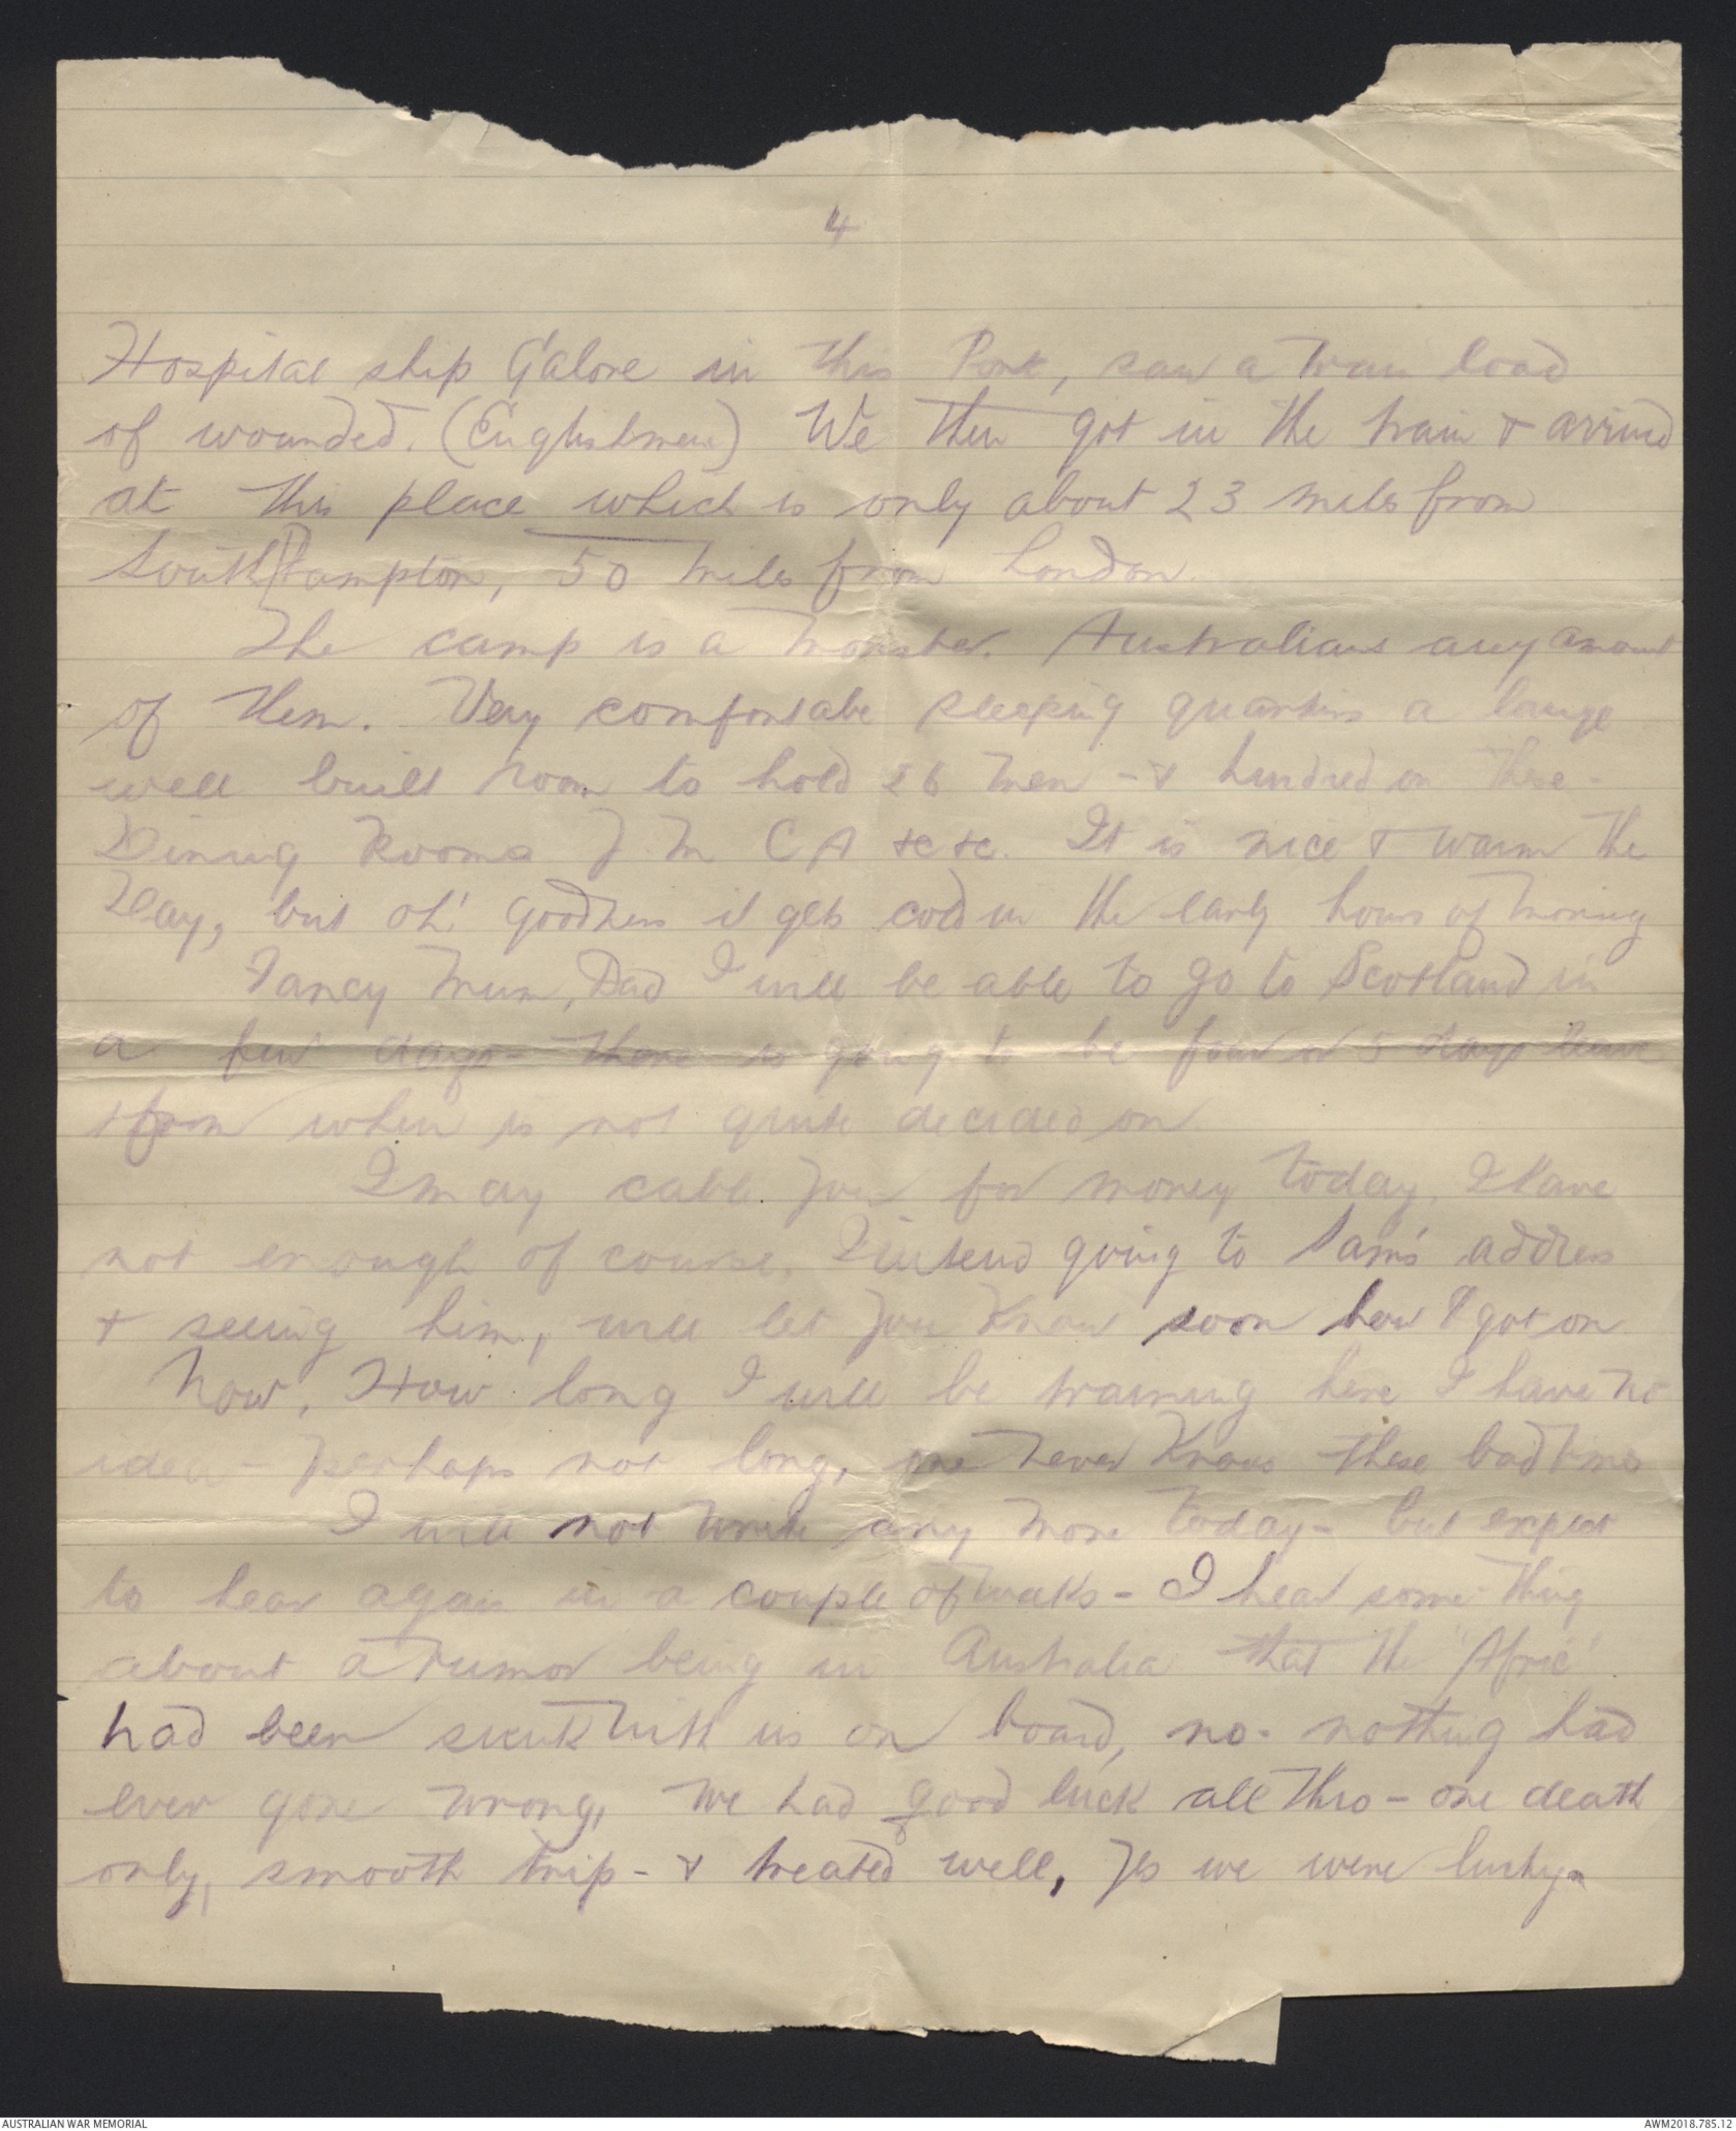 4
Hospital ship Galore in this Port, saw a train load
of wounded. (Englishmen) We then got in the train & arrived
at this place which is only about 23 miles from
SouthHampton, 50 miles from London.
The camp is a monster. Australians any amount
of them. Very comfortabe sleeping quarters a large
well built room to hold 26 men - & hundred on these -
Dining Rooms Y M C A &c &c. It is nice & warm the
Day, but oh! goodness it gets cold in the early hours of moring
Fancy Mum, Dad I will be able to go to Scotland in
a few days - there is going to be four or 5 days leave
from when is not quite decided on
I may cable you for money today, I Have
not enough of course, I intend going to Sam's address
& seeing him, will let you Know soon how I got on
Now. How long I will be training here I have no
idea - perhaps not long, one never Knows these bad times
I will not write any more today - but expect
to hear again in a couple of weeks - I hear some thing
about a rumor being in Australia that the "Afric"
had been sunk with us on board, no. nothing had
ever gone wrong, we had good luck all thro - one death
only, smooth trip - & treated well, Yes we were lucky -
AUSTRALIAN WAR MEMORIAL
AWM2018.785.12